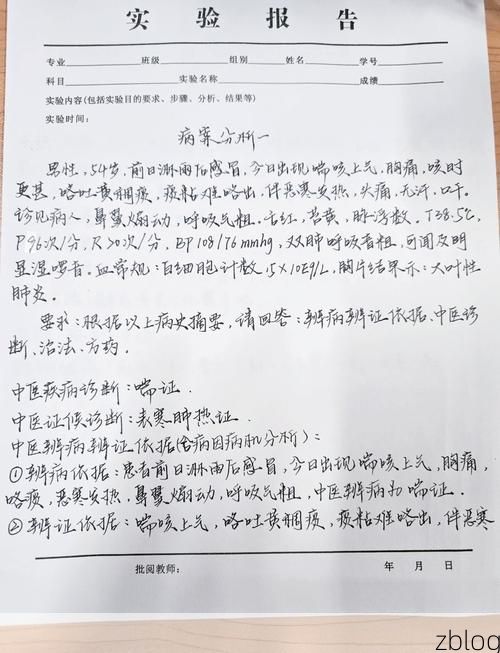 实 验 报 告
专业 班级 组别 姓名 学号
科目 实验名称 成绩
实验内容(包括实验目的要求、步骤、分析、结果等)
实验时间:
病案分析一
男性,54岁,前日淋雨后感冒,今日出现喘咳上气,胸痛,咳时
更甚,咯吐黄稠痰,痰粘难咯出,伴恶寒发热,头痛,无汗,口干。
诊见病人,鼻翼煽动,呼吸气粗,舌红,苔黄,脉浮数。T38.5℃,
P96次/分,R>0次/分,BP108/76mmhg,双肺呼吸音粗,可闻及明
显湿啰音。血常规:白细胞计数15×10E9/L,胸片结果示:大叶性
肺炎。
要求:根据以上病史摘要,请回答:辨病辨证依据、中医诊
断、治法、方药。
中医疾病诊断:喘证.
中医证候诊断:表寒肺热证.
中医辨病辨证依据(含病因病机分析):
①辨病依据:患者前日淋雨后感冒,今日出现喘咳上气,胸痛,
咯痰,恶寒发热,鼻翼煽动,呼吸气粗,中医辨病为喘证.
②辨证依据:喘咳上气,咯吐黄稠痰,痰粘难咯出,伴恶寒
批阅教师: 年 月 日
zblog